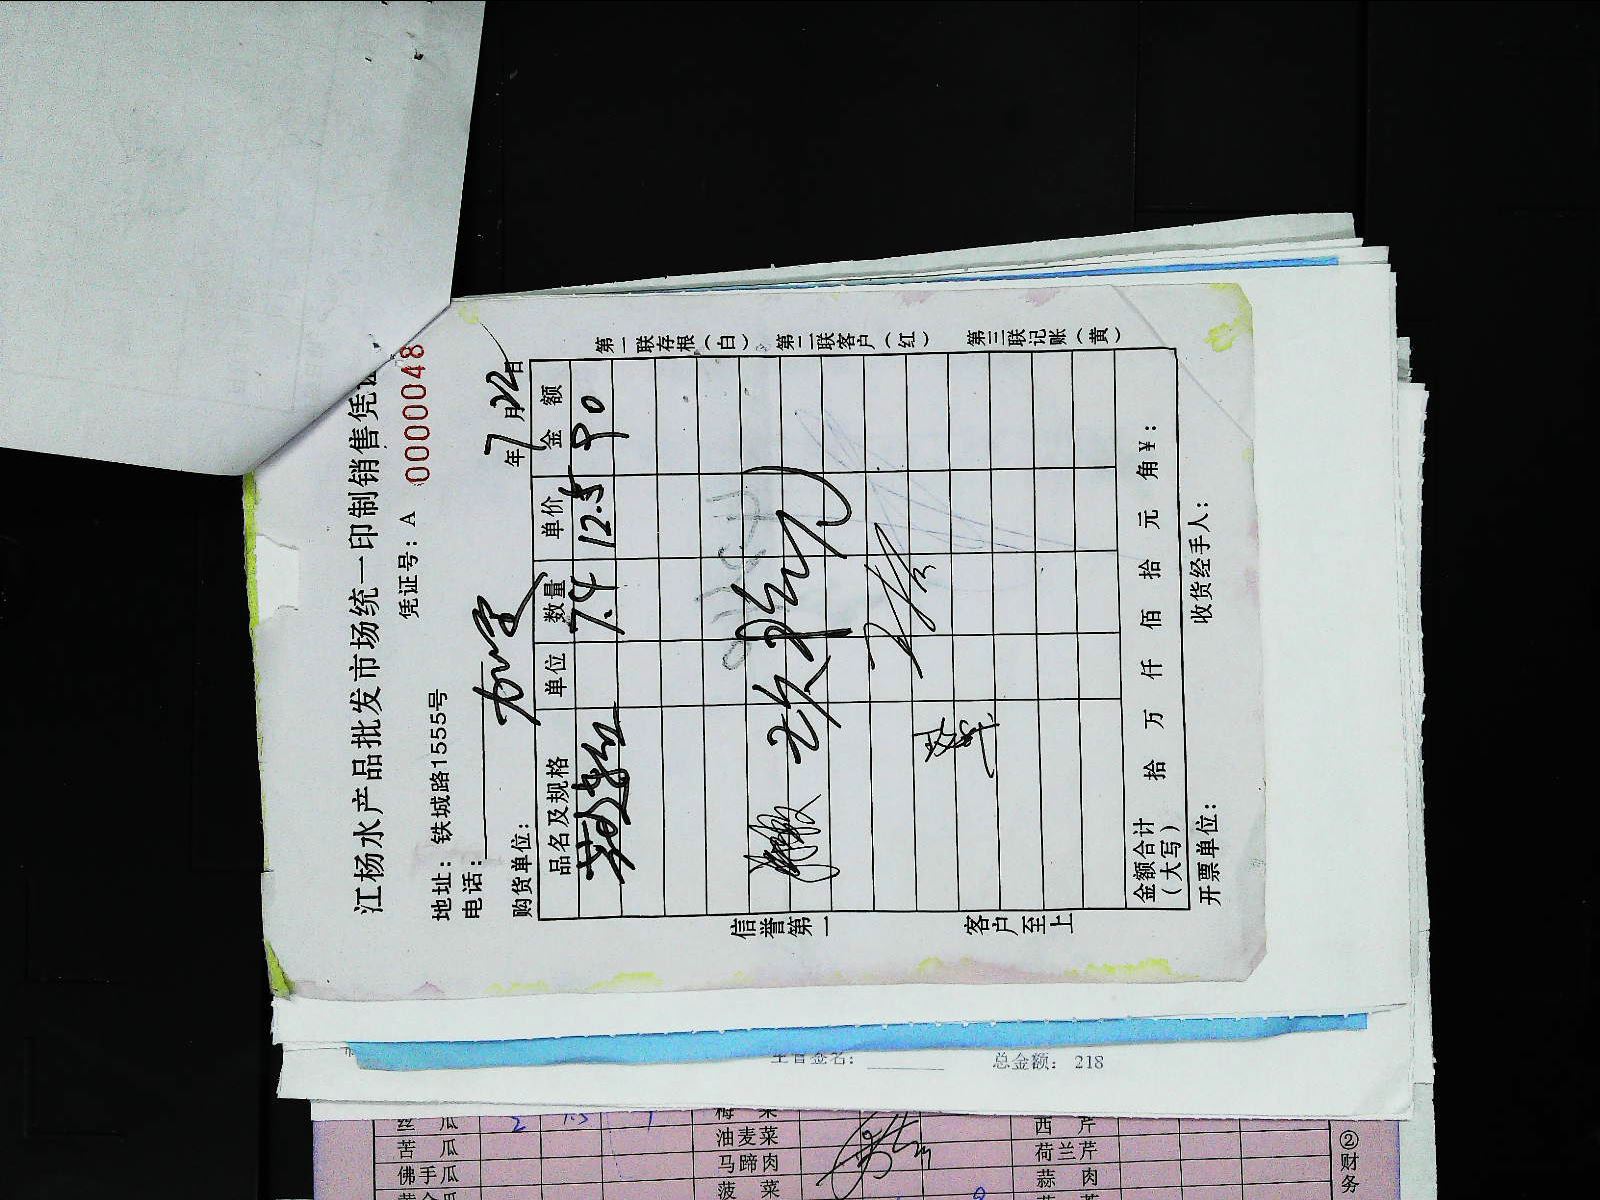 江杨水产品批发市场统一印制销售凭
凭证号：A 0000048
地址：铁城路1555号
电话：
购货单位： 年7月22日
品名及规格 单位 数量 单价 金额
7.4 12.5 90
金额合计（大写） 拾 万 仟 佰 拾 元 角￥：
开票单位： 收货经手人：
第一联存根（白） 第二联客户（红） 第三联记账（黄）
信誉第一 客户至上
总金额： 218
丝瓜 2 1.5
苦瓜 油麦菜 西芹
佛手瓜 马蹄肉 荷兰芹
菠菜 蒜肉
②财务